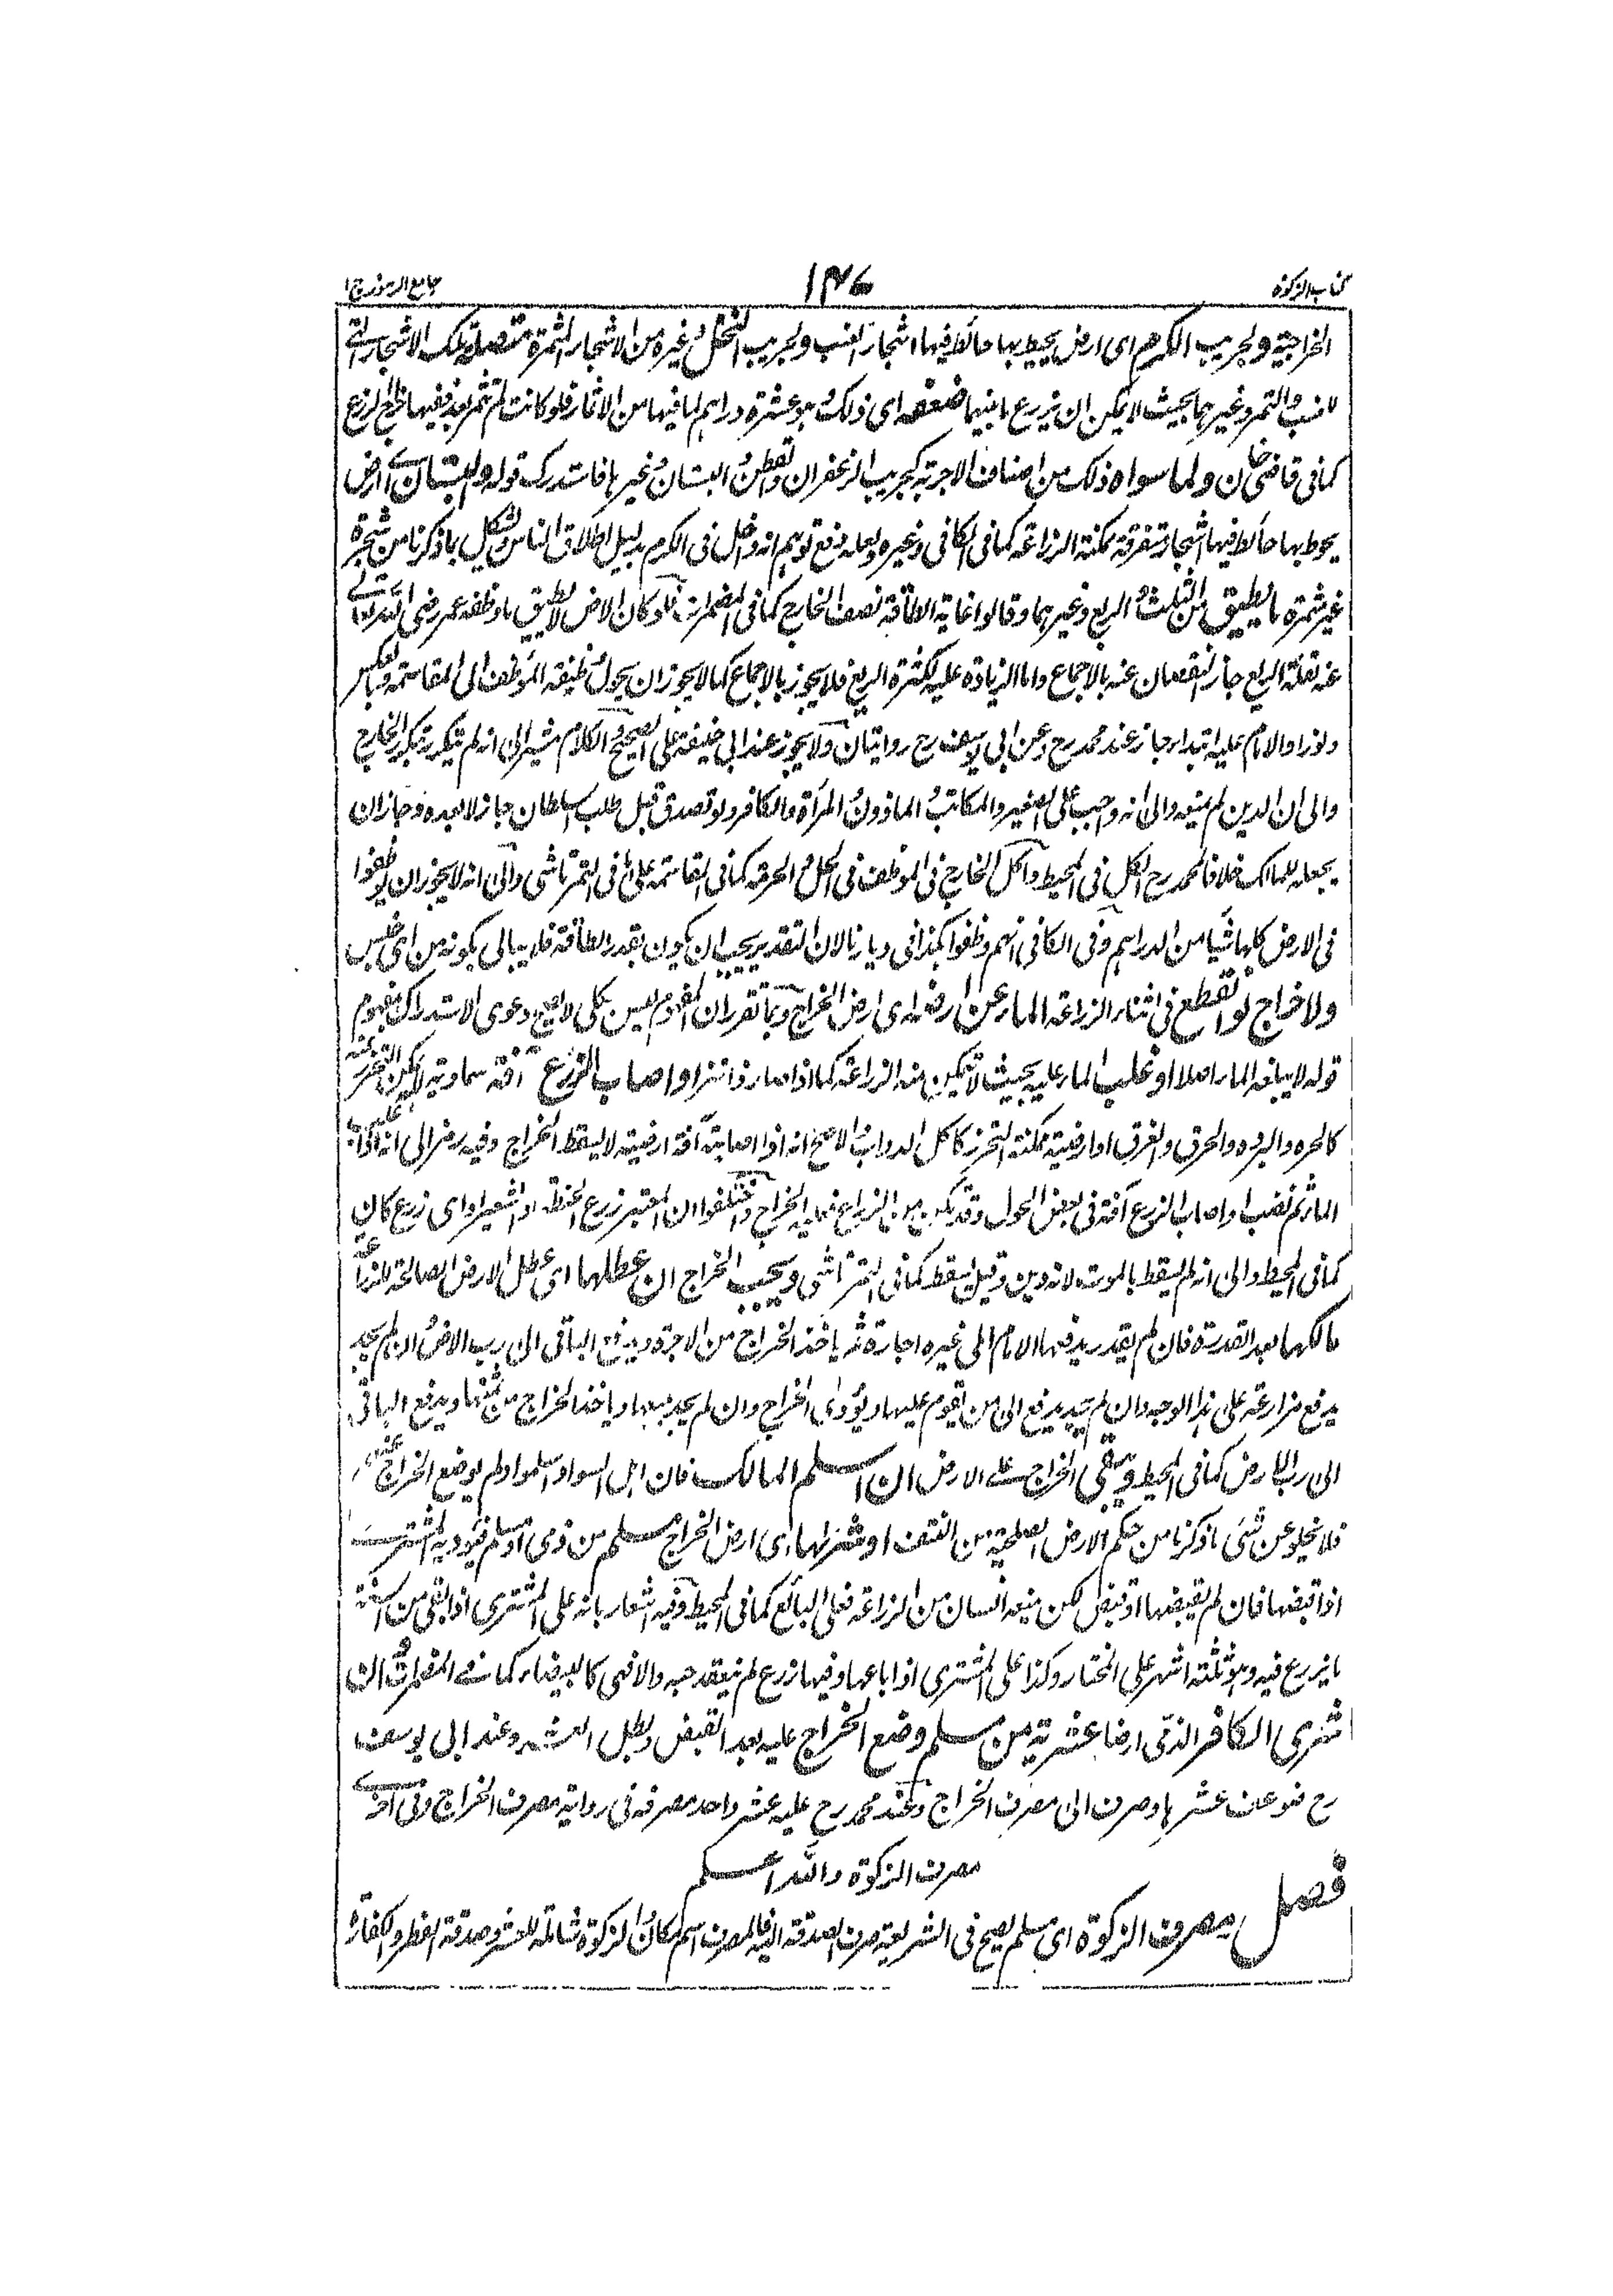 كتاب الزكوة
١٤٧
جامع الرموز ج ١
الخراجية ولجريب الكرم اى ارض يحيط بها حائط فيها اشجار العنب ولجريب النخل وغيره من الاشجار المثمرة متصلة تلك الاشجار التى
لا نسب والتمر وغيرهما بحيث لا يمكن ان يزرع ما بينهما ضعفه اى ذلك وهو عشرة دراهم لما فيها من الاثمار فلو كانت لم تثمر بعد ففيها خراج الزرع
كما فى قاضى خان ولما سواه ذلك من اصناف الاجربة كجريب الزعفران والقطن والبستان وغيرها فاستدرك قوله والبستان ارض
يحوط بها حائط فيها اشجار متفرقة ممكنة الزراعة كما فى الكافى وغيره ولعله دفع توهم انه داخل فى الكرم بدليل اطلاق الناس ويشكل بما ذكرنا من شجرة
غير مثمرة ما يطيق من الثلث والربع وغيرهما وقالوا غاية الطاقة نصف الخارج كما فى المضمرات فلو كان الارض لا يطيق ما وظفه عمر رضى الله تعالى
عنه لقلة الريع جاز النقصان عنه بالاجماع واما الزيادة عليه لكثرة الريع فلا يجوز بالاجماع كما لا يجوز ان يحول وظيفة الموظف الى المقاسمة وبالعكس
ولو زاد الامام عليه ابتداء جاز عند محمد رح وعن ابى يوسف رح روايتان ولا يجوز عند ابى حنيفة على الصحيح والكلام مشير الى انه لم يتكرر بتكرر الخارج
والى ان الدين لم يمنعه والى انه وجب على الصغير والمكاتب والماذون والمرأة والكافر ولو تصدق قبل طلب السلطان جاز لا بعده وجاز ان
يجعله للمالك خلافا لمحمد رح الكل فى المحيط واكل الخارج فى الموظف فى الحل والحرمة كما فى المقاسمة على ما فى التمرتاشى والى انه لا يجوز ان يوظفوا
فى الارض كلها شيئا من الدراهم وفى الكافى انهم وظفوا هكذا فى ديارنا لان التقدير يجب ان يكون بقدر الطاقة فلا يبالى بكونه من اى جنس
ولا خراج لو انقطع فى اثناء الزراعة الماء عن ارضه اى ارض الخراج وبما تقرر ان المفهوم ليس بكلى لا يصح دعوى الاستدراك بمفهوم
قوله لا يبلغه الماء اصلا او غلب الماء عليه بحيث لا يتمكن منه الزراعة كما اذا صار ذا نز او اصاب الزرع آفة سماوية لا يمكن التحرز عنه
كالحر والبرد والحرق والغرق او ارضية ممكنة التحرز كاكل الدواب والاصح انه اذا اصابته آفة ارضية لا يسقط الخراج وفيه رمز الى انه اذا غلب
الماء ثم نضب او اصاب الزرع آفة فى بعض الحول وقد يمكن من الزراعة فعليه الخراج واختلفوا ان المعتبر زرع الحنطة او الشعير او اى زرع كان
كما فى المحيط والى انه لم يسقط بالموت لانه دين وقيل يسقط كما فى التمرتاشى ويجب الخراج ان عطلها اى عطل الارض الصالحة للزراعة
مالكها بعد القدرة فان لم يقدر يدفعها الامام الى غيره اجارة ثم ياخذ الخراج من الاجرة ويدفع الباقى الى رب الارض وان لم يجد
يدفع مزارعة على هذا الوجه وان لم يجد يدفع الى من يقوم عليها ويؤدى الخراج وان لم يجد يبيعها وياخذ الخراج من ثمنها ويدفع الباقى
الى رب الارض كما فى المحيط ويبقى الخراج على الارض ان اسلم المالك فان اهل السواد اسلموا ولم يوضع الخراج عنهم
فلا يخلو عن شئ ما ذكرنا من حكم الارض الصلحية من الضعف او شراها اى ارض الخراج مسلم من ذمى او مسلم فيؤديه المشترى
اذا قبضها فان لم يقبضها او قبض لكن منعه انسان من الزراعة فعلى البائع كما فى المحيط وفيه اشعار بانه على المشترى اذا بقى من السنة
ما يزرع فيه وهو ثلثة اشهر على المختار وكذا على المشترى اذا باعها وفيها زرع لم ينعقد حبه والا فهى كالبيضاء كما فى المضمرات وان
شرى الكافر الذمى ارضا عشرية من مسلم وضع الخراج عليه بعد القبض وبطل العشر وعند ابى يوسف
رح ضوعف عشرها وصرف الى مصرف الخراج وعند محمد رح عليه عشر واحد مصرفه فى رواية مصرف الخراج وفى اخرى
مصرف الزكوة والله اعلم
فصل مصرف الزكوة اى مسلم يصح فى الشريعة صرف الصدقة اليه فالمصرف اسم مكان والزكوة شاملة للعشر وصدقة الفطر والكفارة